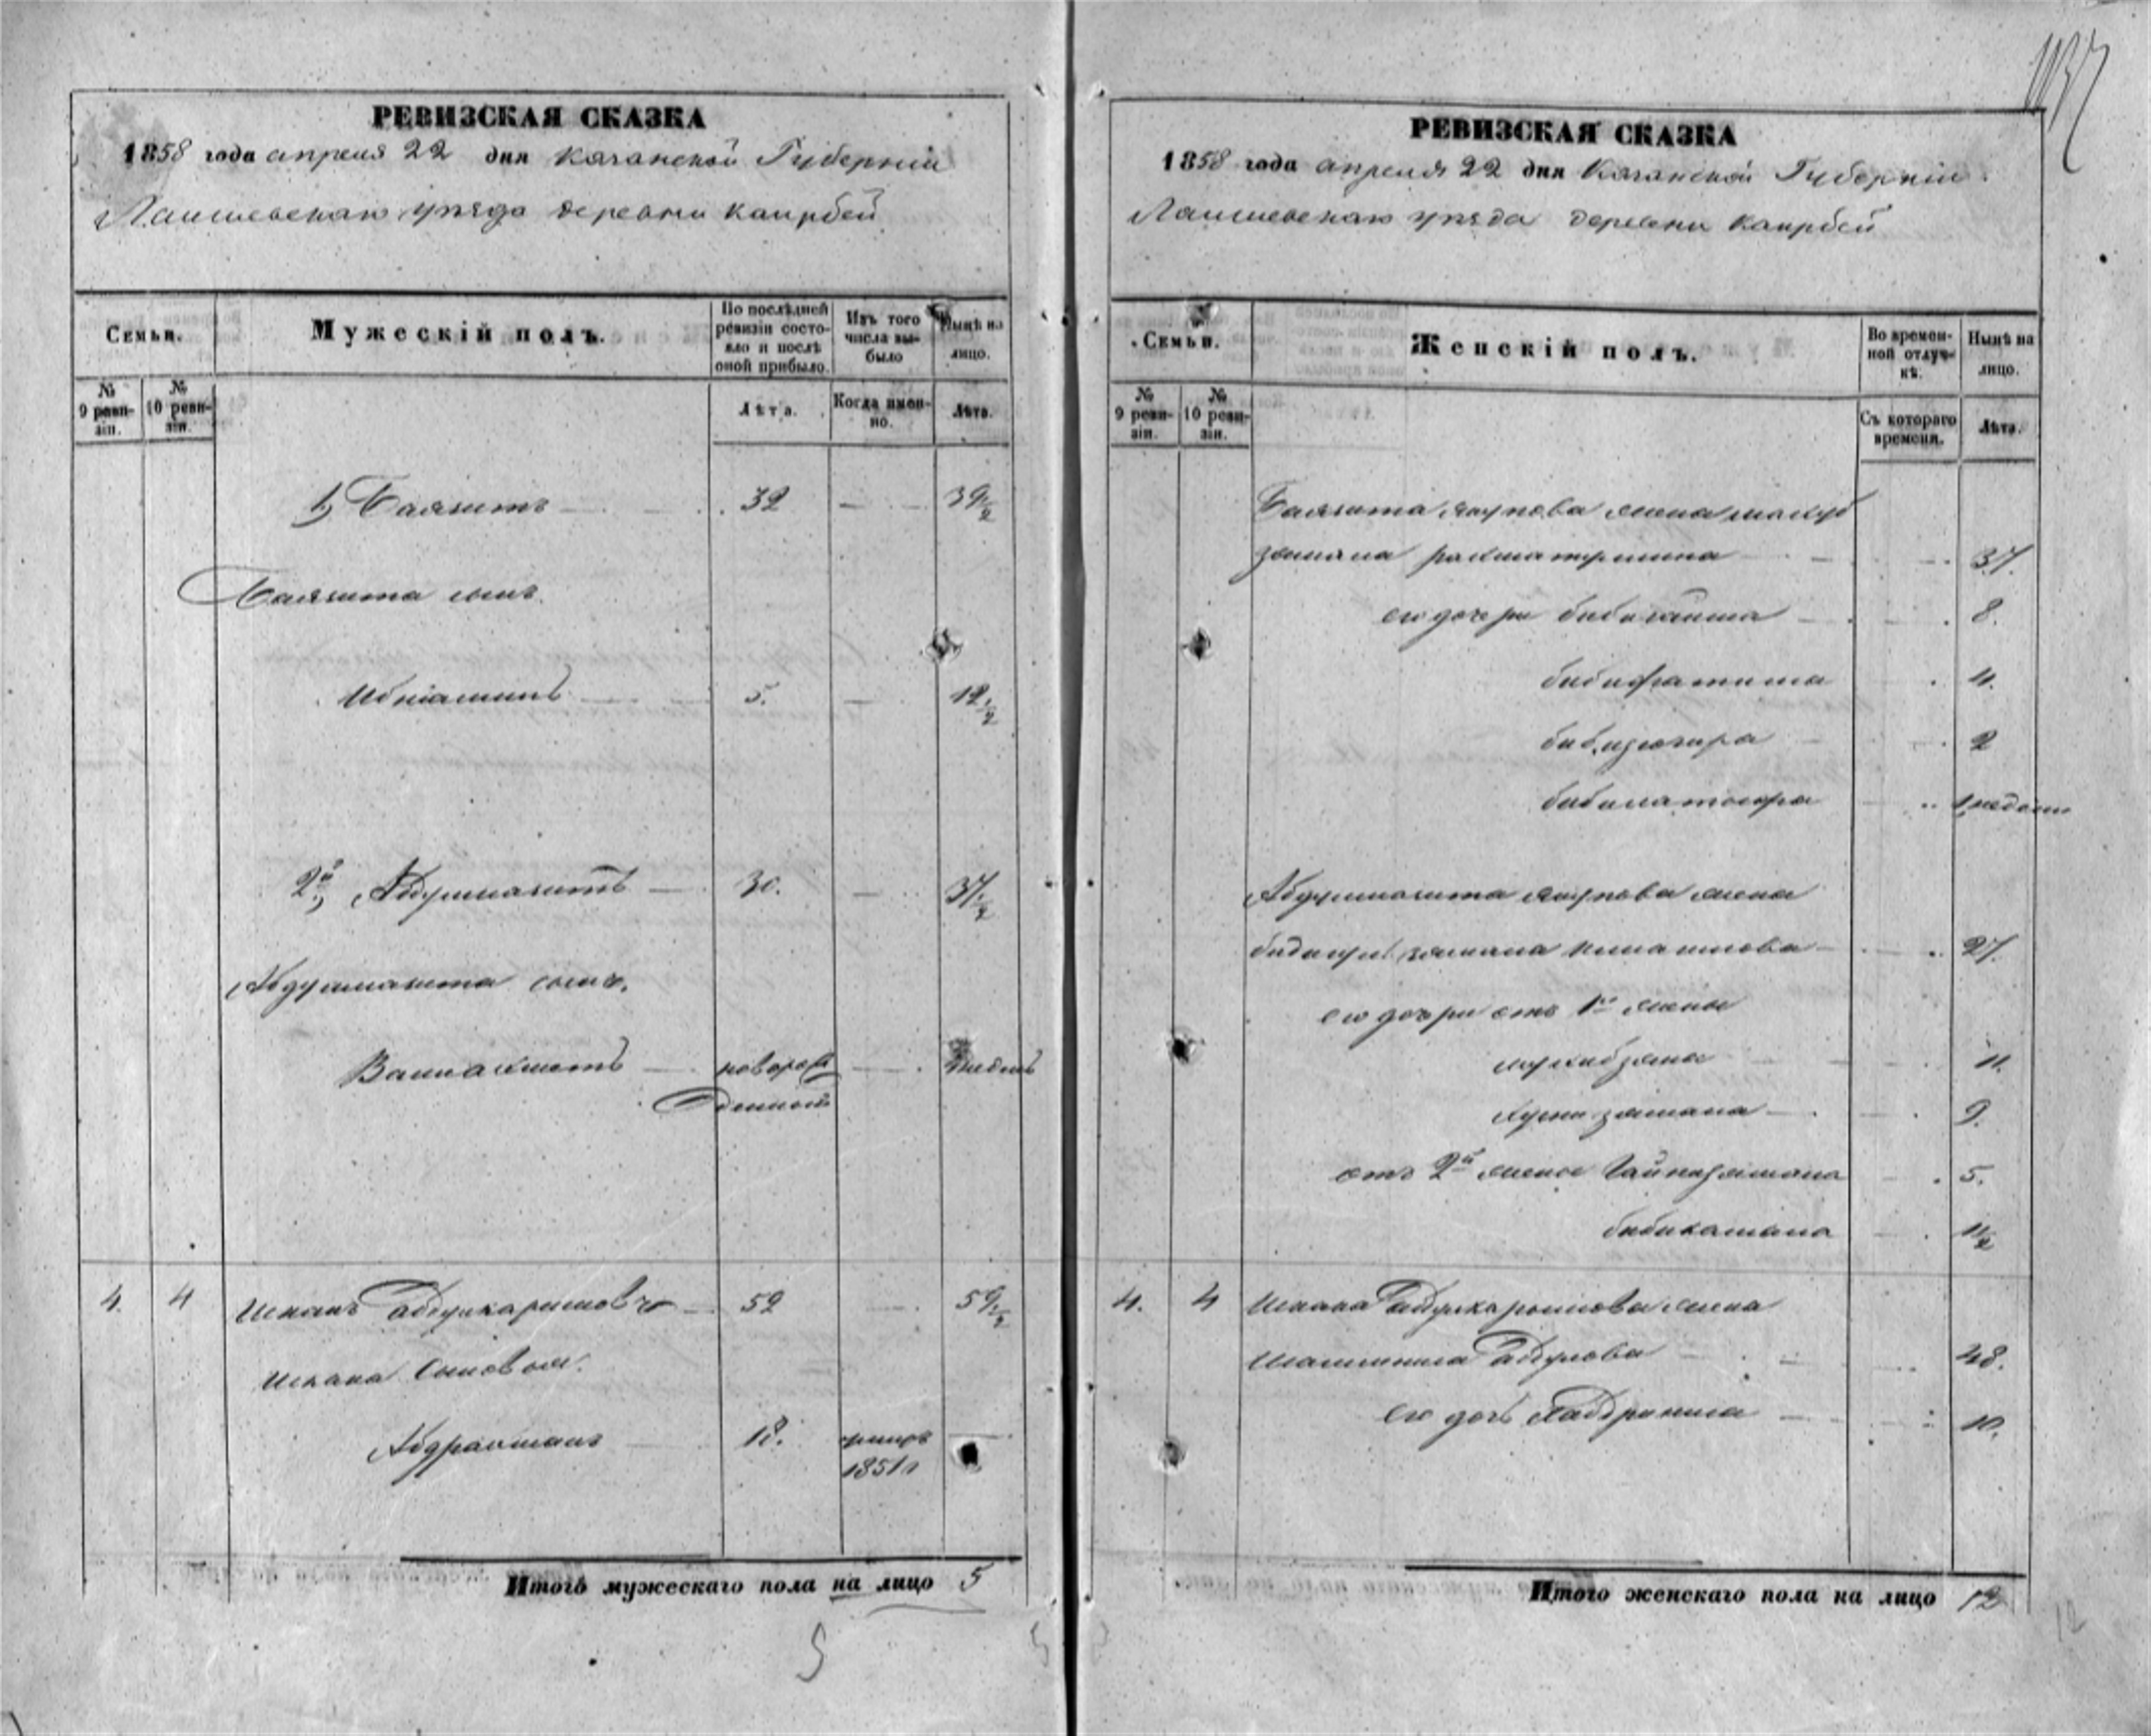 1137
РЕВИЗСКАЯ СКАЗКА
1858 года апреля 22 дня Казанской Губернiи
Лаишевскаго уезда деревни Каирбей
Семьи.
Мужескiй полъ.
По послѣдней ревизiи состояло и послѣ оной прибыло.
Изъ того числа выбыло
Нынѣ на лицо.
№ 9 ревизiи.
№ 10 ревизiи.
Лѣта.
Когда именно.
Лѣта.
1) Баязитъ — 32 — 39 1/2
Баязита сынъ
Ибнiаминъ — 5. — 12 1/2
2й) Абдулмазитъ — 30. — 37 1/2
Абдулмазита сынъ.
Валиахметъ — новорож — недель
денной
4. 4 Исхакъ Габдулкаримовъ — 52 59 1/2
Исхака Сыновья.
Абдрахманъ 18. умеръ —
1851 г
Итого мужескаго пола на лицо 5
5
РЕВИЗСКАЯ СКАЗКА
1858 года апреля 22 дня Казанской Губернiи
Лаишевскаго уезда деревни Каирбей
Семьи.
Женскiй полъ.
Во временной отлучкѣ.
Нынѣ на лицо.
№ 9 ревизiи.
№ 10 ревизiи.
Съ котораго времени.
Лѣта.
Баязита Якупова жена
37.
его дочери бибигайша 8.
бибифатима 4.
2
1 недели
Абдулмазита Якупова жена
27.
его дочери отъ 1й жены
11.
9.
отъ 2й жены Гайнизямала 5.
бибикамала 1 1/2
4. 4 Исхака Габдулкаримова жена
Габдулова 48.
Его дочь 10.
Итого женскаго пола на лицо 12
12